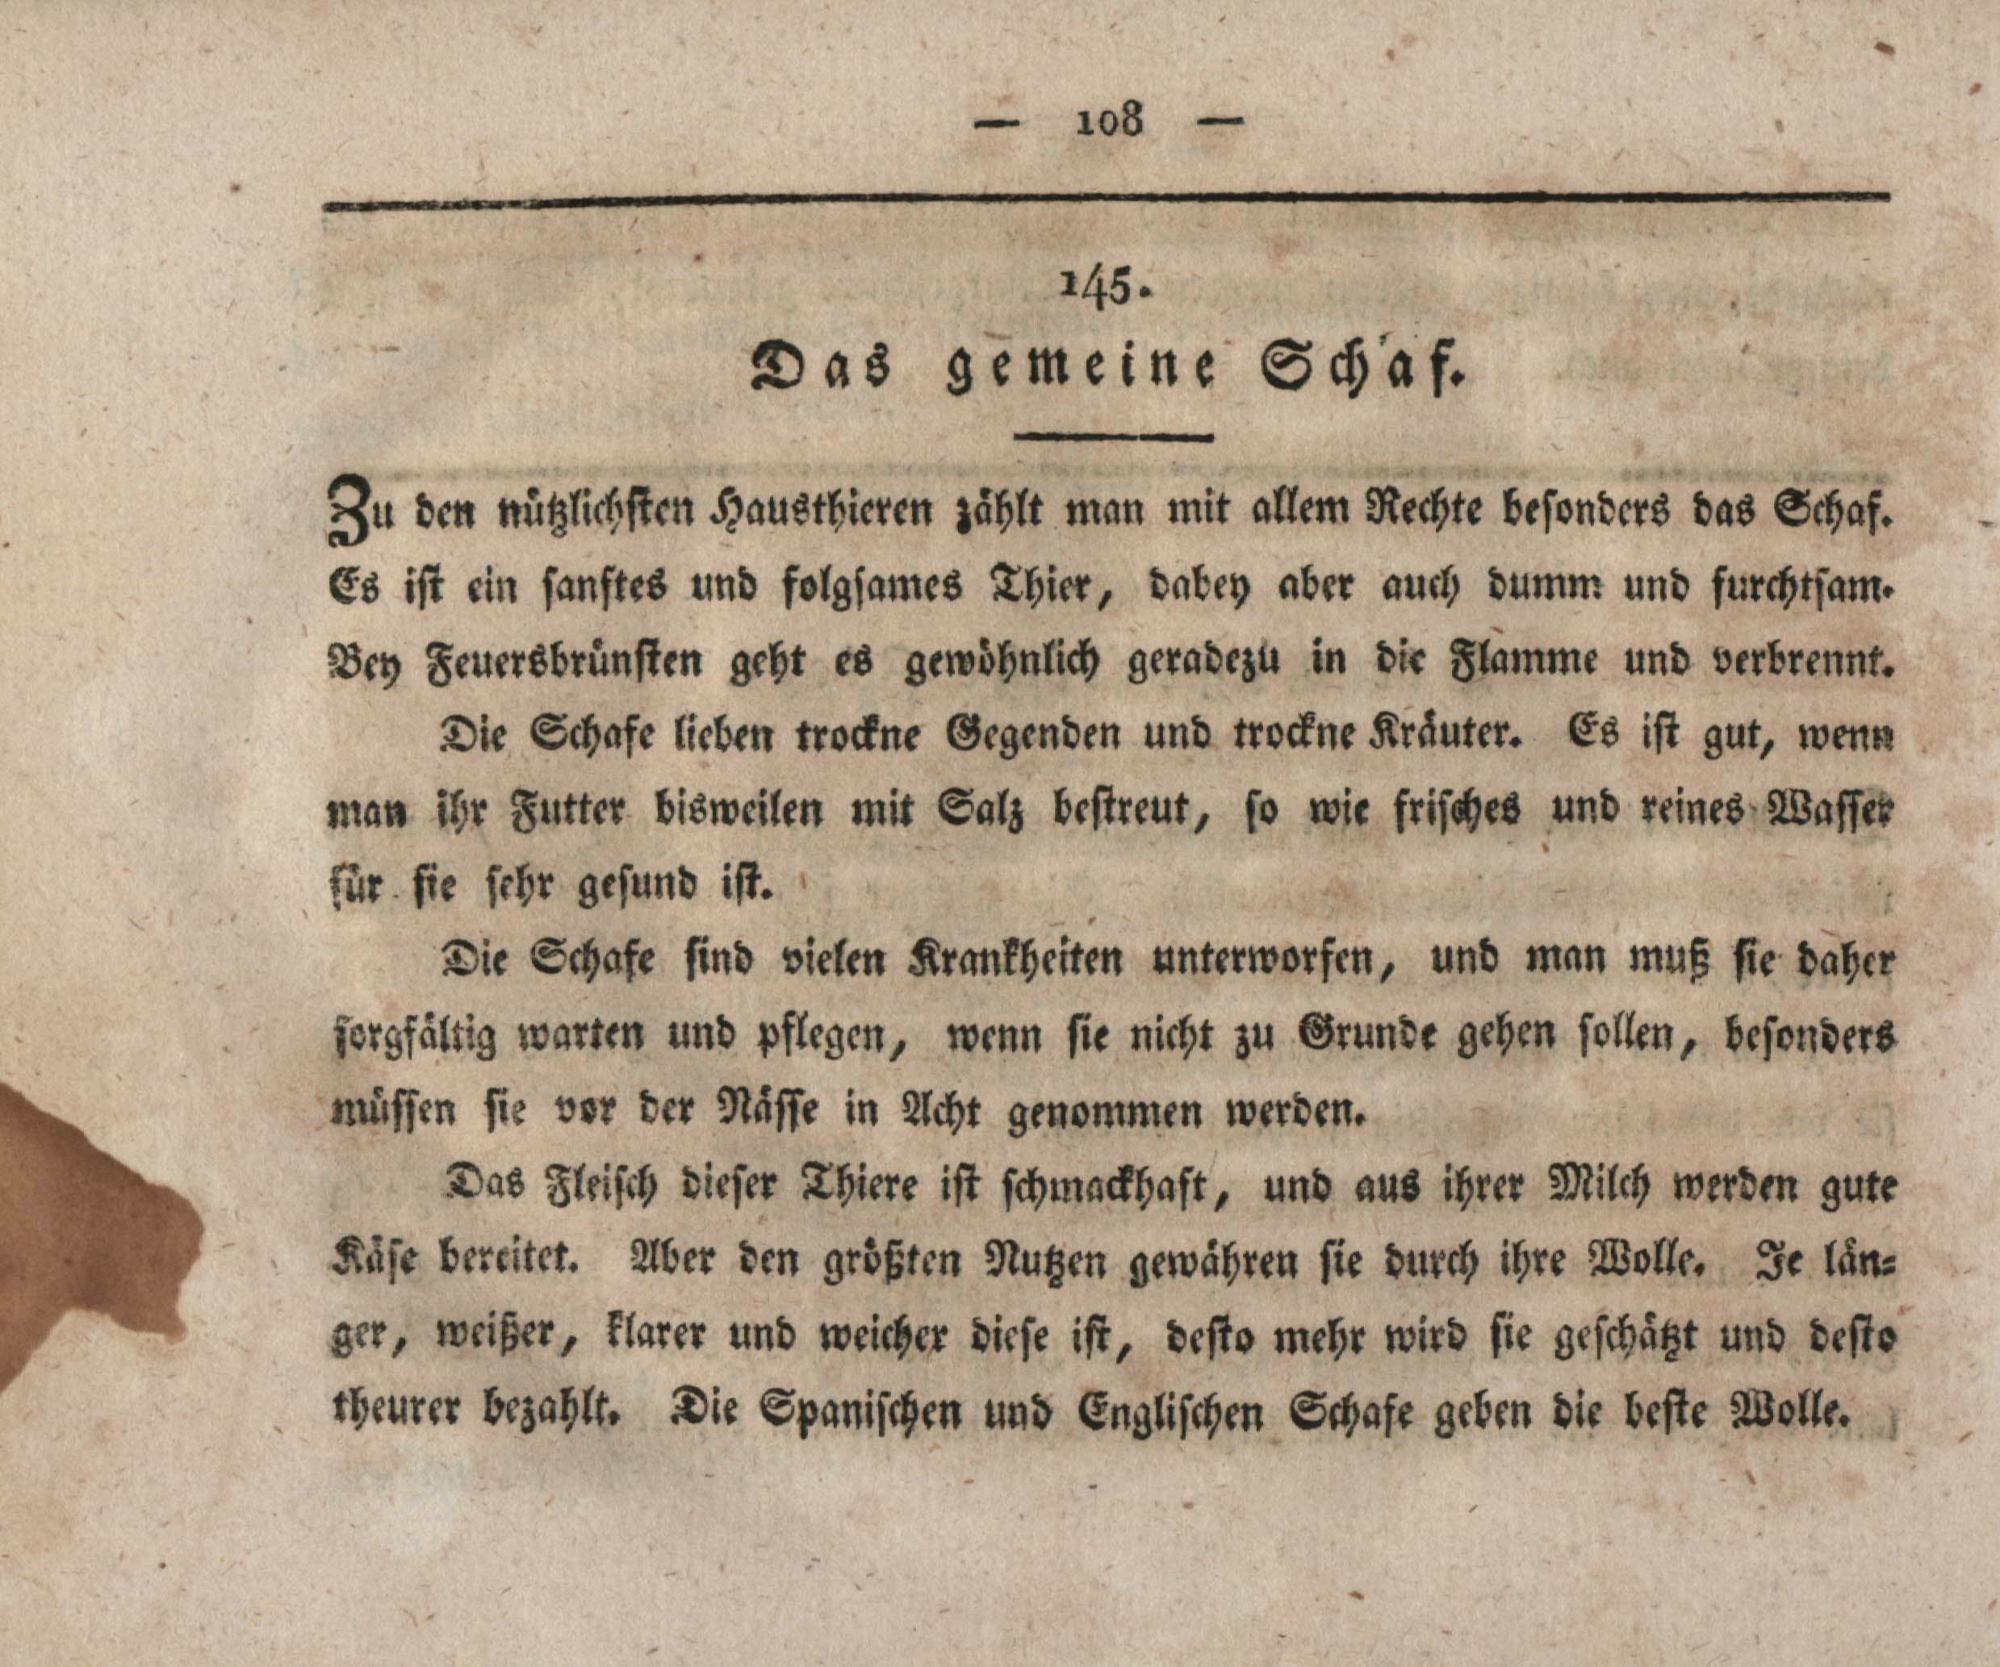 — 108 —
145.
Das gemeine Schaf.
Zu den nützlichsten Hausthieren zählt man mit allem Rechte besonders das Schaf.
Es ist ein sanftes und folgsames Thier, dabey aber auch dumm und furchtsam.
Bey Feuersbrünsten geht es gewöhnlich geradezu in die Flamme und verbrennt.
Die Schafe lieben trockne Gegenden und trockne Kräuter. Es ist gut, wenn
man ihr Futter bisweilen mit Salz bestreut, so wie frisches und reines Wasser
für sie sehr gesund ist.
Die Schafe sind vielen Krankheiten unterworfen, und man muß sie daher
sorgfältig warten und pflegen, wenn sie nicht zu Grunde gehen sollen, besonders
müssen sie vor der Nässe in Acht genommen werden.
Das Fleisch dieser Thiere ist schmackhaft, und aus ihrer Milch werden gute
Käse bereitet. Aber den größten Nutzen gewähren sie durch ihre Wolle. Je län-
ger, weißer, klarer und weicher diese ist, desto mehr wird sie geschätzt und desto
theurer bezahlt. Die Spanischen und Englischen Schafe geben die beste Wolle.